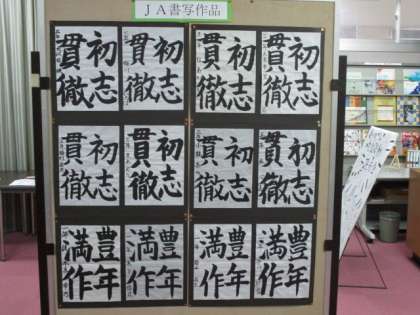 ＪＡ書写作品
初志
貫徹
初志
貫徹
初志
貫徹
初志
貫徹
初志
貫徹
初志
貫徹
初志
貫徹
初志
貫徹
豊年
満作
豊年
満作
豊年
満作
豊年
満作